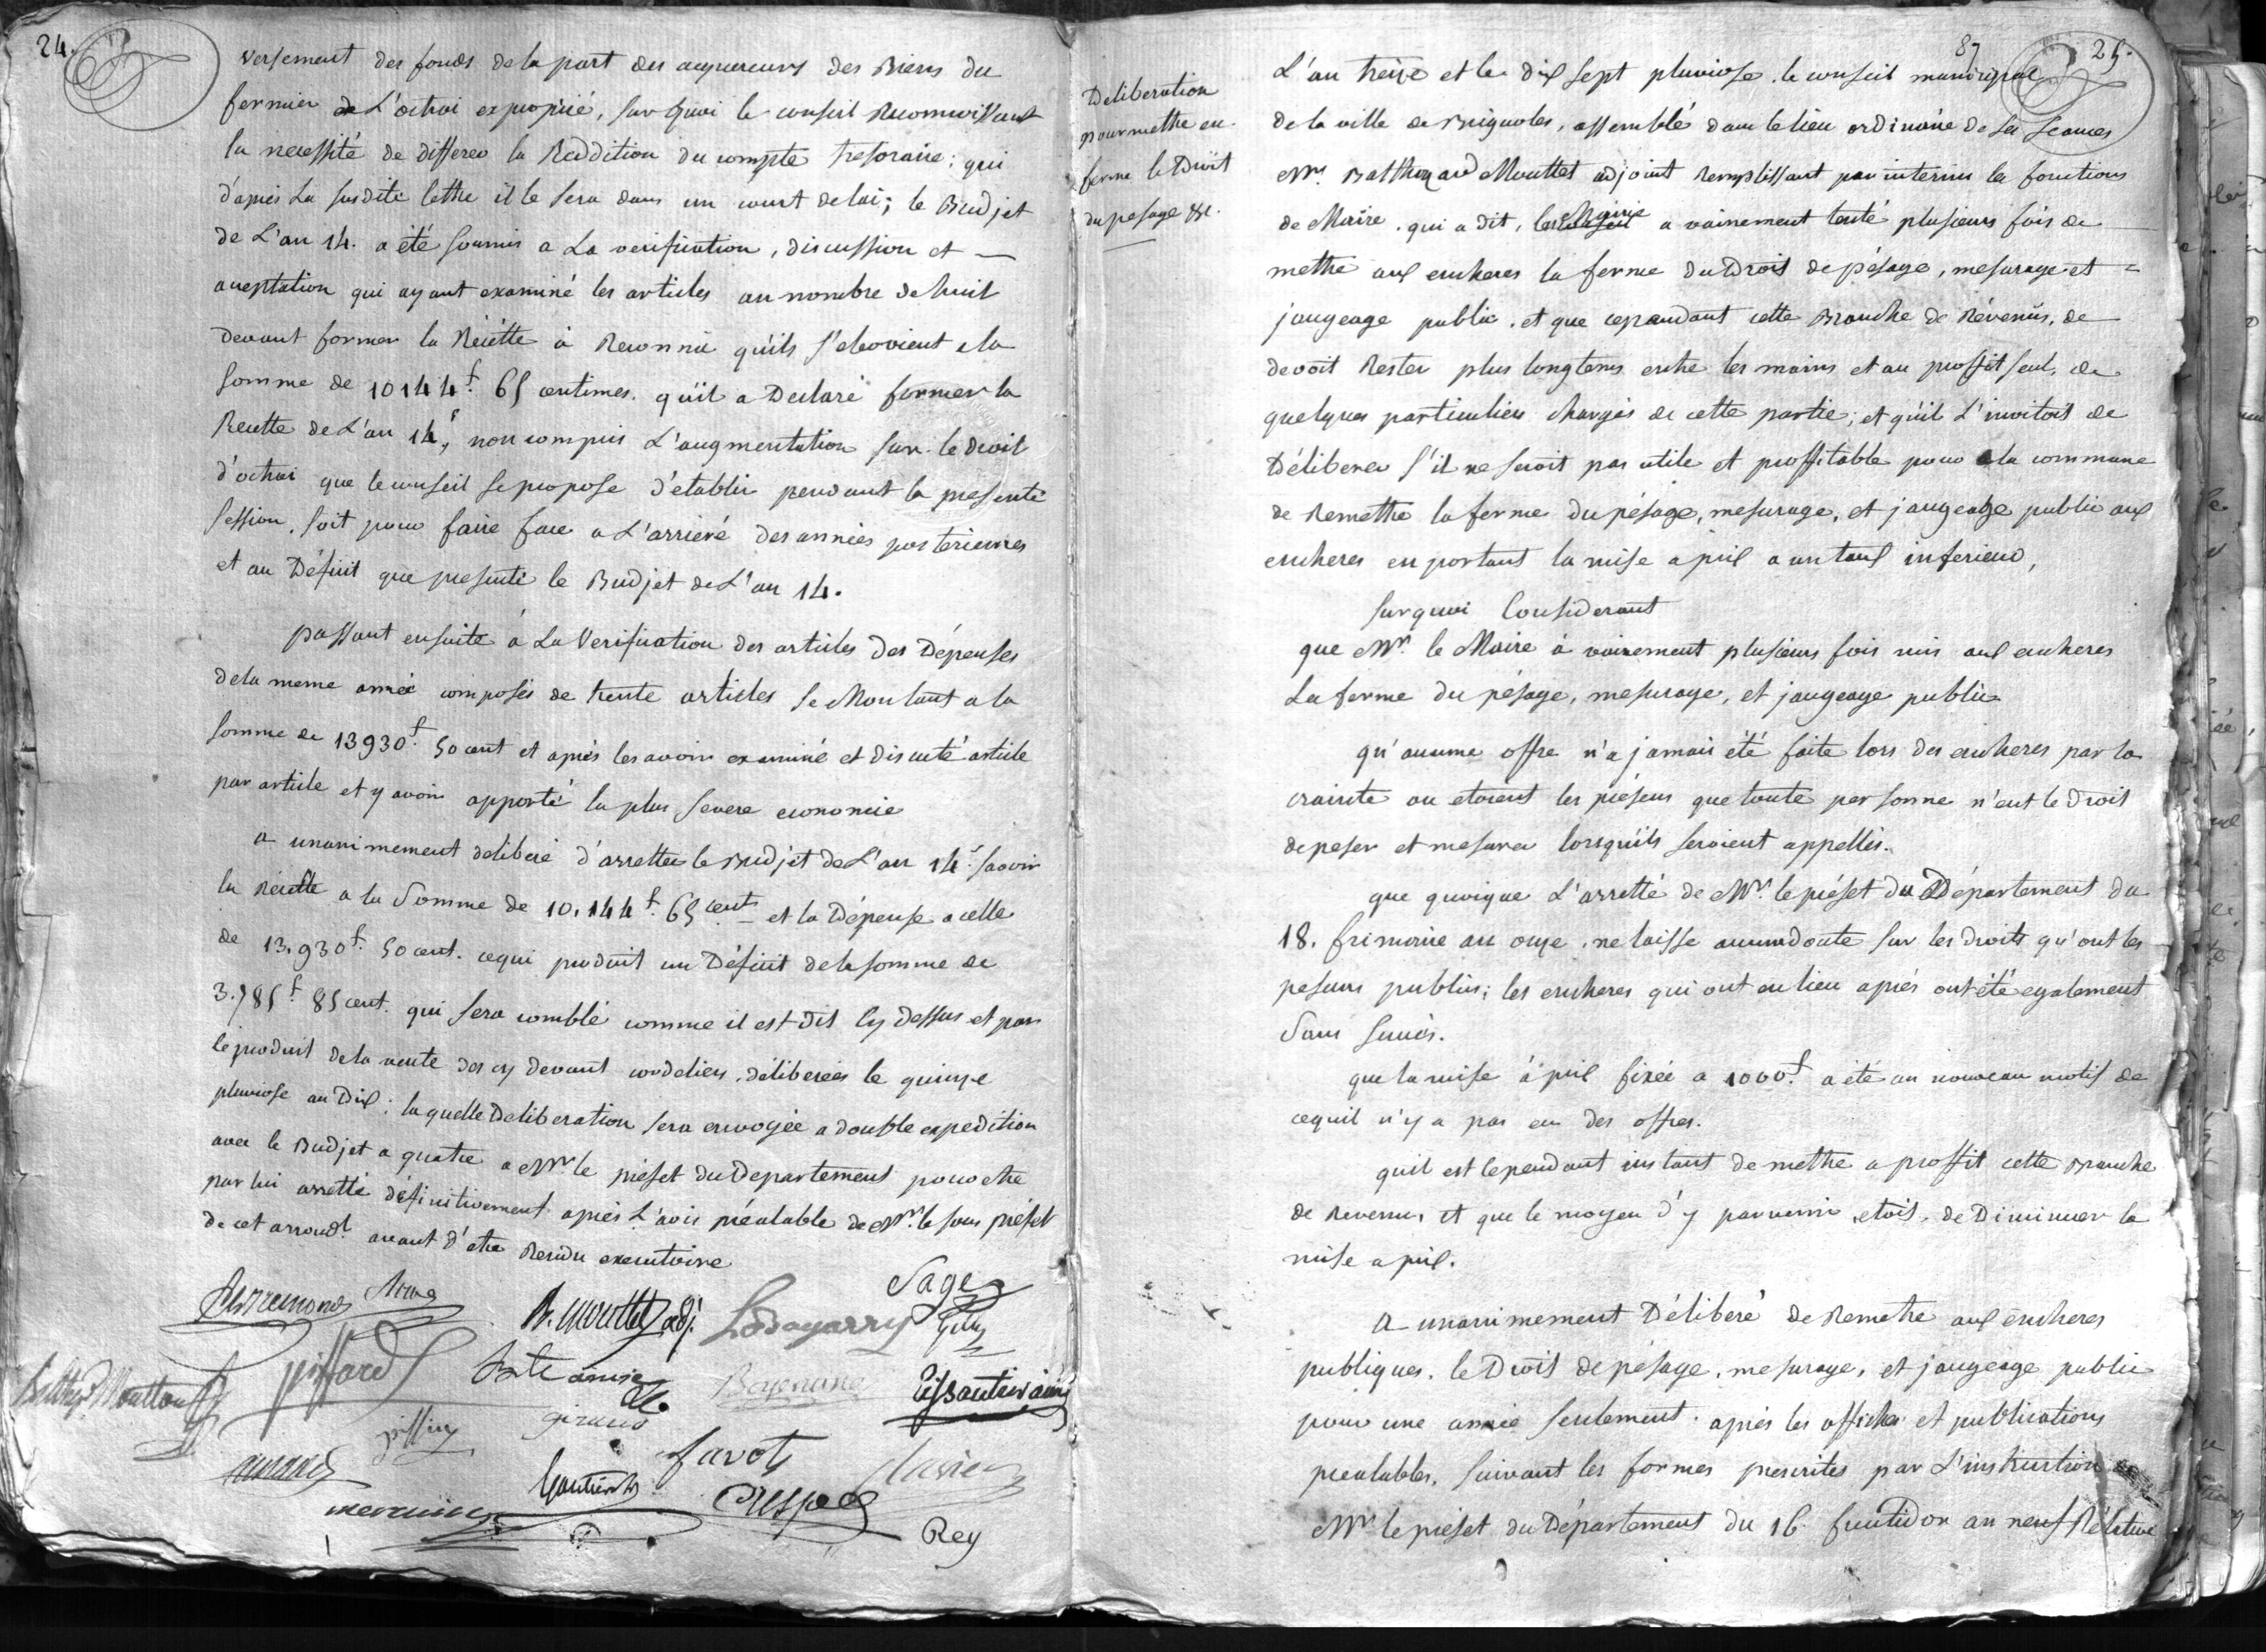 24.
versement des fonds de la part des acquereurs des Biens du
fermier de L'octroi exproprié, sur quoi le conseil Reconnoissant
la necessité de differer la Reddition du compte tresoraire; qui
d'apres La susdite lettre il le sera dans un court delai; le Budjet
de L'an 14. a été soumis a La verification, discussion et
acceptation qui ayant examiné les articles au nombre de huit
devant former la Récétte à Reconnu qu'ils s'elevoient a la
somme de 10144f. 65 centimes. qu'il a Declaré former la
Recette de L'an 14, non compris L'augmentation sur le droit
d'octroi que le conseil se propose d'etablir pendant la presente
session, soit pour faire face a L'arrieré des années posterieures
et au Déficit que presente le Budjet de L'an 14.
passant ensuite à La Verification des articles des Dépenses
de la meme année composés de trente articles se Montant a la
somme de 13930f. 50 cent et après les avoir examiné et discuté article
par article et y avoir apporté la plus severe economie
a unanimement deliberé d'arretter le Budjet de L'an 14. savoir
la Récette a la Somme de 10.144f. 65 cent et la Dépense a celle
de 13.930f. 50 cent. ce qui produit un Déficit de la somme de
3.785f. 85 cent. qui sera comblé comme il est dit Cy dessus et par
le produit de la vente des cy devant cordeliers, déliberées le quinze
pluviose an Dix; laquelle Deliberation sera envoyée a double expedition
avec le Budjet a quatre a Mr. le préfet du Departement pour etre
par lui arretté définitivement apres L'avis préalable de Mr. le sous préfet
de cet arrondt. avant d'etre Rendu executoire
B. Mouttet adj. Sage
piffard
Barthd. Mouttou
giraud
favot
Gautier
Crespe
Rey
87 25.
Deliberation
pour mettre en
ferme le Droit
du pesage &c.
L'an treize et le dix sept pluviose, le conseil municipal
de la ville de Brignoles, assemblé dans le lieu ordinaire de ses seances
Mr. Balthazard Mouttet adjoint Remplissant par interim les fonctions
de Maire, qui a dit, la Mairie a vainement tenté plusieurs fois de
mettre aux encheres la ferme du Droit de pésage, mesurage et
jaugeage public, et que cependant cette Branche de Révenùs, ne
devoit Rester plus longtems entre les mains et au proffit seul, de
quelques particuliers chargés de cette partie; et qu'il L'invitoit de
Déliberer s'il ne seroit pas utile et proffitable pour la commune
de Remettre la ferme du pésage, mesurage, et jaugeage public aux
encheres en portant la mise a prix a un taux inferieur,
sur quoi Considerant
que Mr. le Maire à vainement plusieurs fois mis aux encheres
La ferme du pésage, mesurage, et jaugeage public
qu'aucune offre n'a jamais été faite lors des encheres par la
crainte ou etoient les péseurs que toute personne n'eut le droit
de peser et mesurer lorsqu'ils seroient appellés.
que quoique L'arretté de Mr. le préfet du Département du
18. frimaire an onze, ne laisse aucun doute sur les droits qu'ont les
peseurs publics; les encheres qui ont eu lieu après ont été egalement
Sans succès.
que la mise à prix fixée a 1000f. a été un nouveau motif de
ce quil n'y a pas eu des offres.
quil est cependant instant de mettre a proffit cette Branche
de Revenus, et que le moyen d'y parvenir, etoit, de Diminuer la
mise a prix.
A unanimement Délibéré de Remettre aux encheres
publiques, le Droit de pésage, mesurage, et jaugeage public
pour une année seulement. après les affiches et publications
préalables, suivant les formes prescrites par L'instruction de
Mr. le préfet du Département du 16. fructidor an neuf Rélative